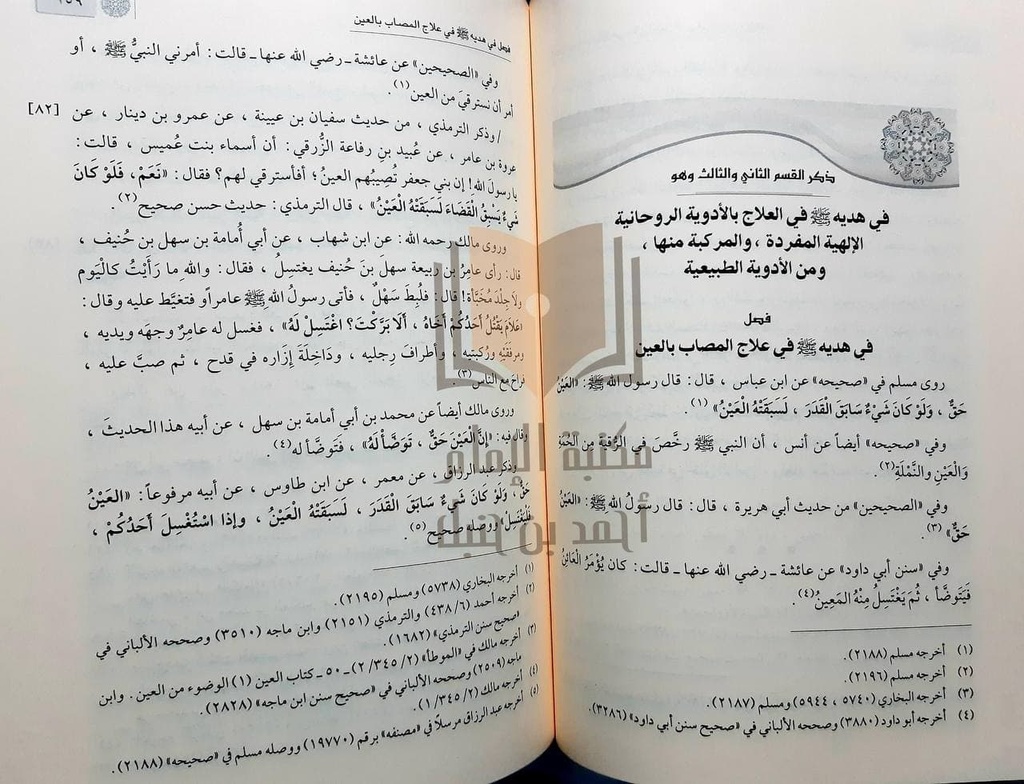 ذكر القسم الثاني والثالث وهو
في هديه ﷺ في العلاج بالأدوية الروحانية
الإلهية المفردة ، والمركبة منها ،
ومن الأدوية الطبيعية
فصل
في هديه ﷺ في علاج المصاب بالعين
روى مسلم في «صحيحه» عن ابن عباس ، قال : قال رسول الله ﷺ: «العَيْنُ
حَقٌّ ، وَلَوْ كَانَ شَيْءٌ سَابَقَ الْقَدَرَ ، لَسَبَقَتْهُ الْعَيْنُ»(١).
وفي «صحيحه» أيضاً عن أنس ، أن النبي ﷺ رخَّصَ في الرُّقيةِ مِن الحُمَةِ
وَالْعَيْنِ والنَّمْلَةِ(٢).
وفي «الصحيحين» من حديث أبي هريرة ، قال : قال رسولُ الله ﷺ: «العَيْنُ
حَقٌّ»(٣).
وفي «سنن أبي داود» عن عائشة ـ رضي الله عنها ـ قالت : كان يُؤْمَرُ الْعَائِنُ
فَيَتَوضَّأ ، ثُم يَغْتَسِلُ مِنْهُ المَعِينُ(٤).
(١) أخرجه مسلم (٢١٨٨).
(٢) أخرجه مسلم (٢١٩٦).
(٣) أخرجه البخاري (٥٧٤٠ ، ٥٩٤٤) ومسلم (٢١٨٧).
(٤) أخرجه أبو داود (٣٨٨٠) وصححه الألباني في «صحيح سنن أبي داود» (٣٢٨٦).
فصل في هديه ﷺ في علاج المصاب بالعين
وفي «الصحيحين» عن عائشة ـ رضي الله عنها ـ قالت : أمرني النبيُّ ﷺ ، أو
أمر أن نسترقيَ من العين(١).
/ وذكر الترمذي ، من حديث سفيان بن عيينة ، عن عمرو بن دينار ، عن [٨٢]
عروة بن عامر ، عن عُبيد بنِ رفاعة الزُّرقي : أن أسماء بنت عُميس ، قالت :
يا رسولَ الله! إن بني جعفر تُصِيبُهم العينُ؛ أفأسترقي لهم؟ فقال : «نَعَمْ، فَلَوْ كَانَ
شَيْءٌ يَسْبِقُ الْقَضَاءَ لَسَبَقَتْهُ الْعَيْنُ» ، قال الترمذي : حديث حسن صحيح(٢).
وروى مالك رحمه الله : عن ابن شهاب ، عن أبي أمامة بن سهل بن حُنيف ،
قال : رأى عامرُ بن ربيعة سهلَ بنَ حُنيف يغتسلُ ، فقال : والله ما رَأَيْتُ كاليَوم
ولا جِلْدَ مُخَبَّأة! قال : فلُبِطَ سَهْلٌ ، فأتى رسولُ اللهِ ﷺ عامراً فتغيَّظ عليه وقال :
«عَلامَ يَقْتُلُ أَحَدُكُمْ أخَاهُ ، أَلَا بَرَّكْتَ؟ اغْتَسِلْ لَهُ» ، فغسل له عامرٌ وجهَه ويديه ،
ومرفَقَيْهِ ورُكبتيه ، وأطرافَ رِجليه ، ودَاخِلَةَ إزَاره في قدح ، ثم صبَّ عليه ،
فراحَ مع الناس(٣).
وروى مالك أيضاً عن محمد بن أبي أمامة بن سهل ، عن أبيه هذا الحديثَ ،
وقال فيه : «إنَّ الْعَيْنَ حَقٌّ ، تَوَضَّأْ لَهُ» ، فَتَوضَّأ له(٤).
وذكر عبد الرزاق ، عن معمر ، عن ابن طاوس ، عن أبيه مرفوعاً : «العَيْنُ
حَقٌّ ، وَلَوْ كَانَ شَيءٌ سَابَقَ الْقَدَرَ ، لَسَبَقَتْهُ الْعَيْنُ ، وإذا اسْتُغْسِلَ أَحَدُكُمْ ،
فَلْيَغْتَسِلْ» ووصله صحيح(٥).
(١) أخرجه البخاري (٥٧٣٨) ومسلم (٢١٩٥).
(٢) أخرجه أحمد (٦/ ٤٣٨) والترمذي (٢١٥١) وابن ماجه (٣٥١٠) وصححه الألباني في
«صحيح سنن الترمذي» (١٦٨٢).
(٣) أخرجه مالك في «الموطأ» (٢/ ٣٤٥/ ٢) ـ ٥٠ ـ كتاب العين (١) الوضوء من العين . وابن
ماجه (٢٥٠٩) وصححه الألباني في «صحيح سنن ابن ماجه» (٢٨٢٨).
(٤) أخرجه مالك (٢/ ٣٤٥/ ١).
(٥) أخرجه عبد الرزاق مرسلاً في «مصنفه» برقم (١٩٧٧٠) ووصله مسلم في «صحيحه» (٢١٨٨).
مكتبة الإمام
أحمد بن حنبل